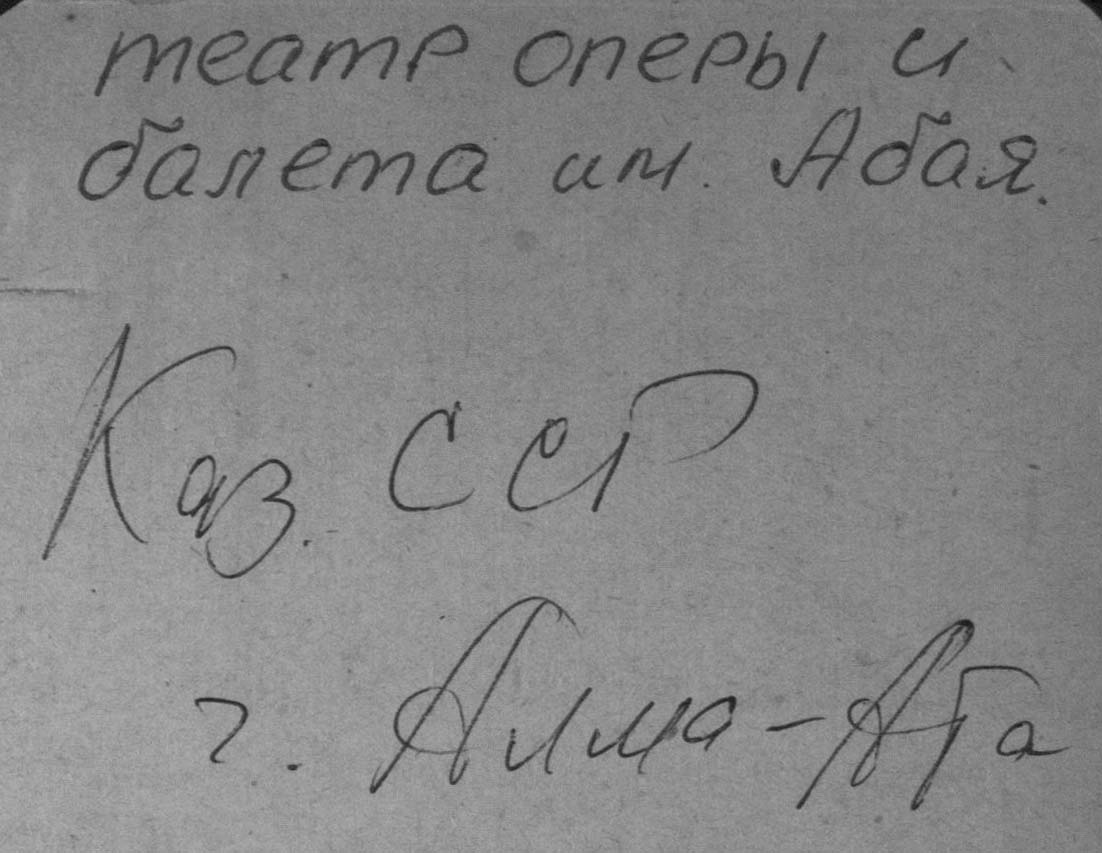 театр оперы и
балета им. Абая.
Каз. ССР
г. Алма-Ата